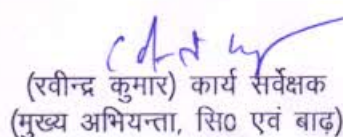 (रवीन्द्र कुमार) कार्य सर्वेक्षक
(मुख्य अभियन्ता, सि0 एवं बाढ़)